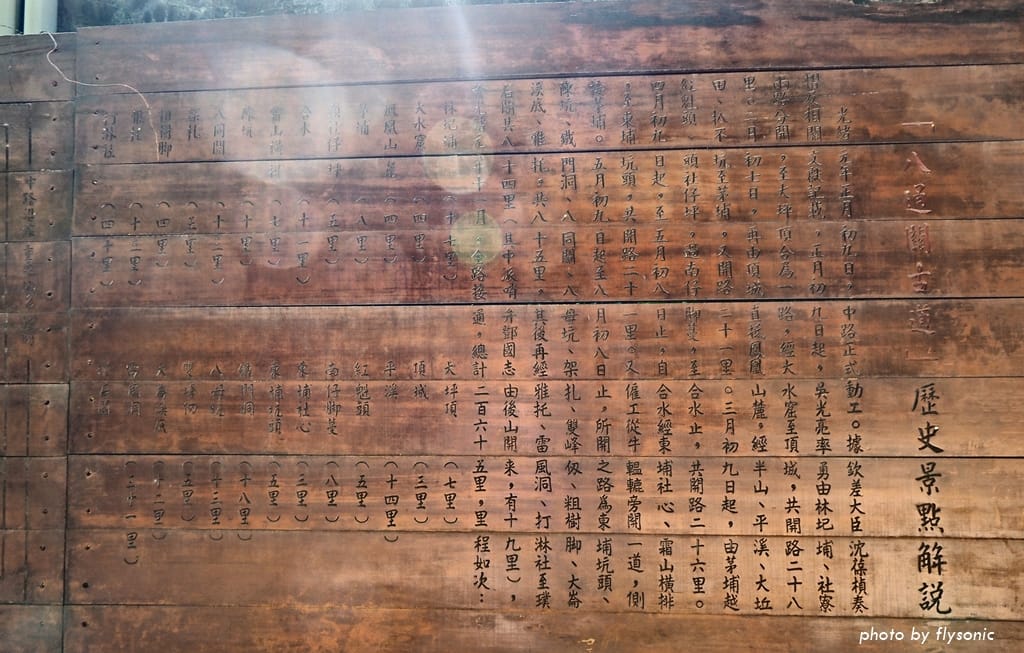 「八通關古道」歷史景點解說
光緒元年正月初九日，中路正式動工。據欽差大臣沈葆楨奏
摺及相關文獻記載，正月初九日起，吳光亮率勇由林圮埔、社寮
兩路分開，至大坪頂合為一路，經大水窟至頂城，共開路二十八
里。二月初十日，再由頂城直接鳳凰山麓，經半山、平溪、大坵
田、扒不坑至茅埔，又開路三十一里。三月初九日起，由茅埔越
紅魁頭、頭社仔坪，過南仔腳蔓，至合水止，共開路二十六里。
四月初九日起，至五月初八日止，自合水經東埔社心、霜山橫排
，至東埔坑頭，共開路二十一里。又僱工從牛轀轆旁開一道，側
茅埔。五月初九日起至八月初八日止，所開之路為東埔坑頭、
陳坑、鐵門洞、八同關、八母坑、架扎、雙峰仞、粗樹腳、大崙
溪底、雅托。共八十五里。其後再經雅托、雷風洞、打淋社至璞
石閣共八十四里（其中派哨弁鄧國志由後山開來，有十九里），
十一月，全路接通，總計二百六十五里，里程如次：
林圮埔（十七里） 大坪頂（七里）
大水窟（四里） 頂城（三里）
鳳凰山麓（四里） 平溪（十四里）
茅埔（八里） 紅魁頭（五里）
頭社仔坪（五里） 南仔腳蔓（八里）
合水（十一里） 東埔社心（三里）
霜山橫排（七里） 東埔坑頭（五里）
陳坑（十里） 鐵門洞（十八里）
八同關（十二里） 八母坑（十三里）
架札 雙峰仞（五里）
粗樹腳（四里） 大崙溪底（十二里）
雷風洞（三十一里）
打淋社
photo by flysonic